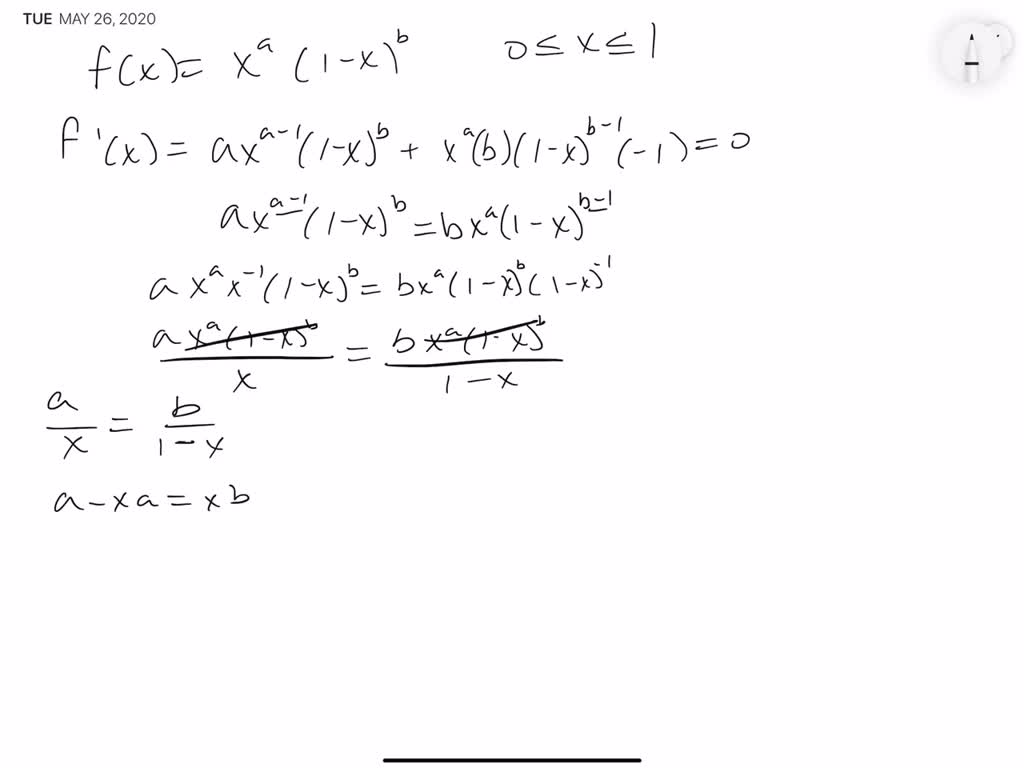 TUE MAY 26, 2020
f(x) = x^a (1-x)^b 0 ≤ x ≤ 1
f'(x) = ax^{a-1}(1-x)^b + x^a(b)(1-x)^{b-1}(-1) = 0
ax^{a-1}(1-x)^b = bx^a(1-x)^{b-1}
a x^a x^{-1}(1-x)^b = bx^a(1-x)^b(1-x)^{-1}
a x^a(1-x)^b / x = b x^a(1-x)^b / 1-x
a/x = b/1-x
a - xa = xb